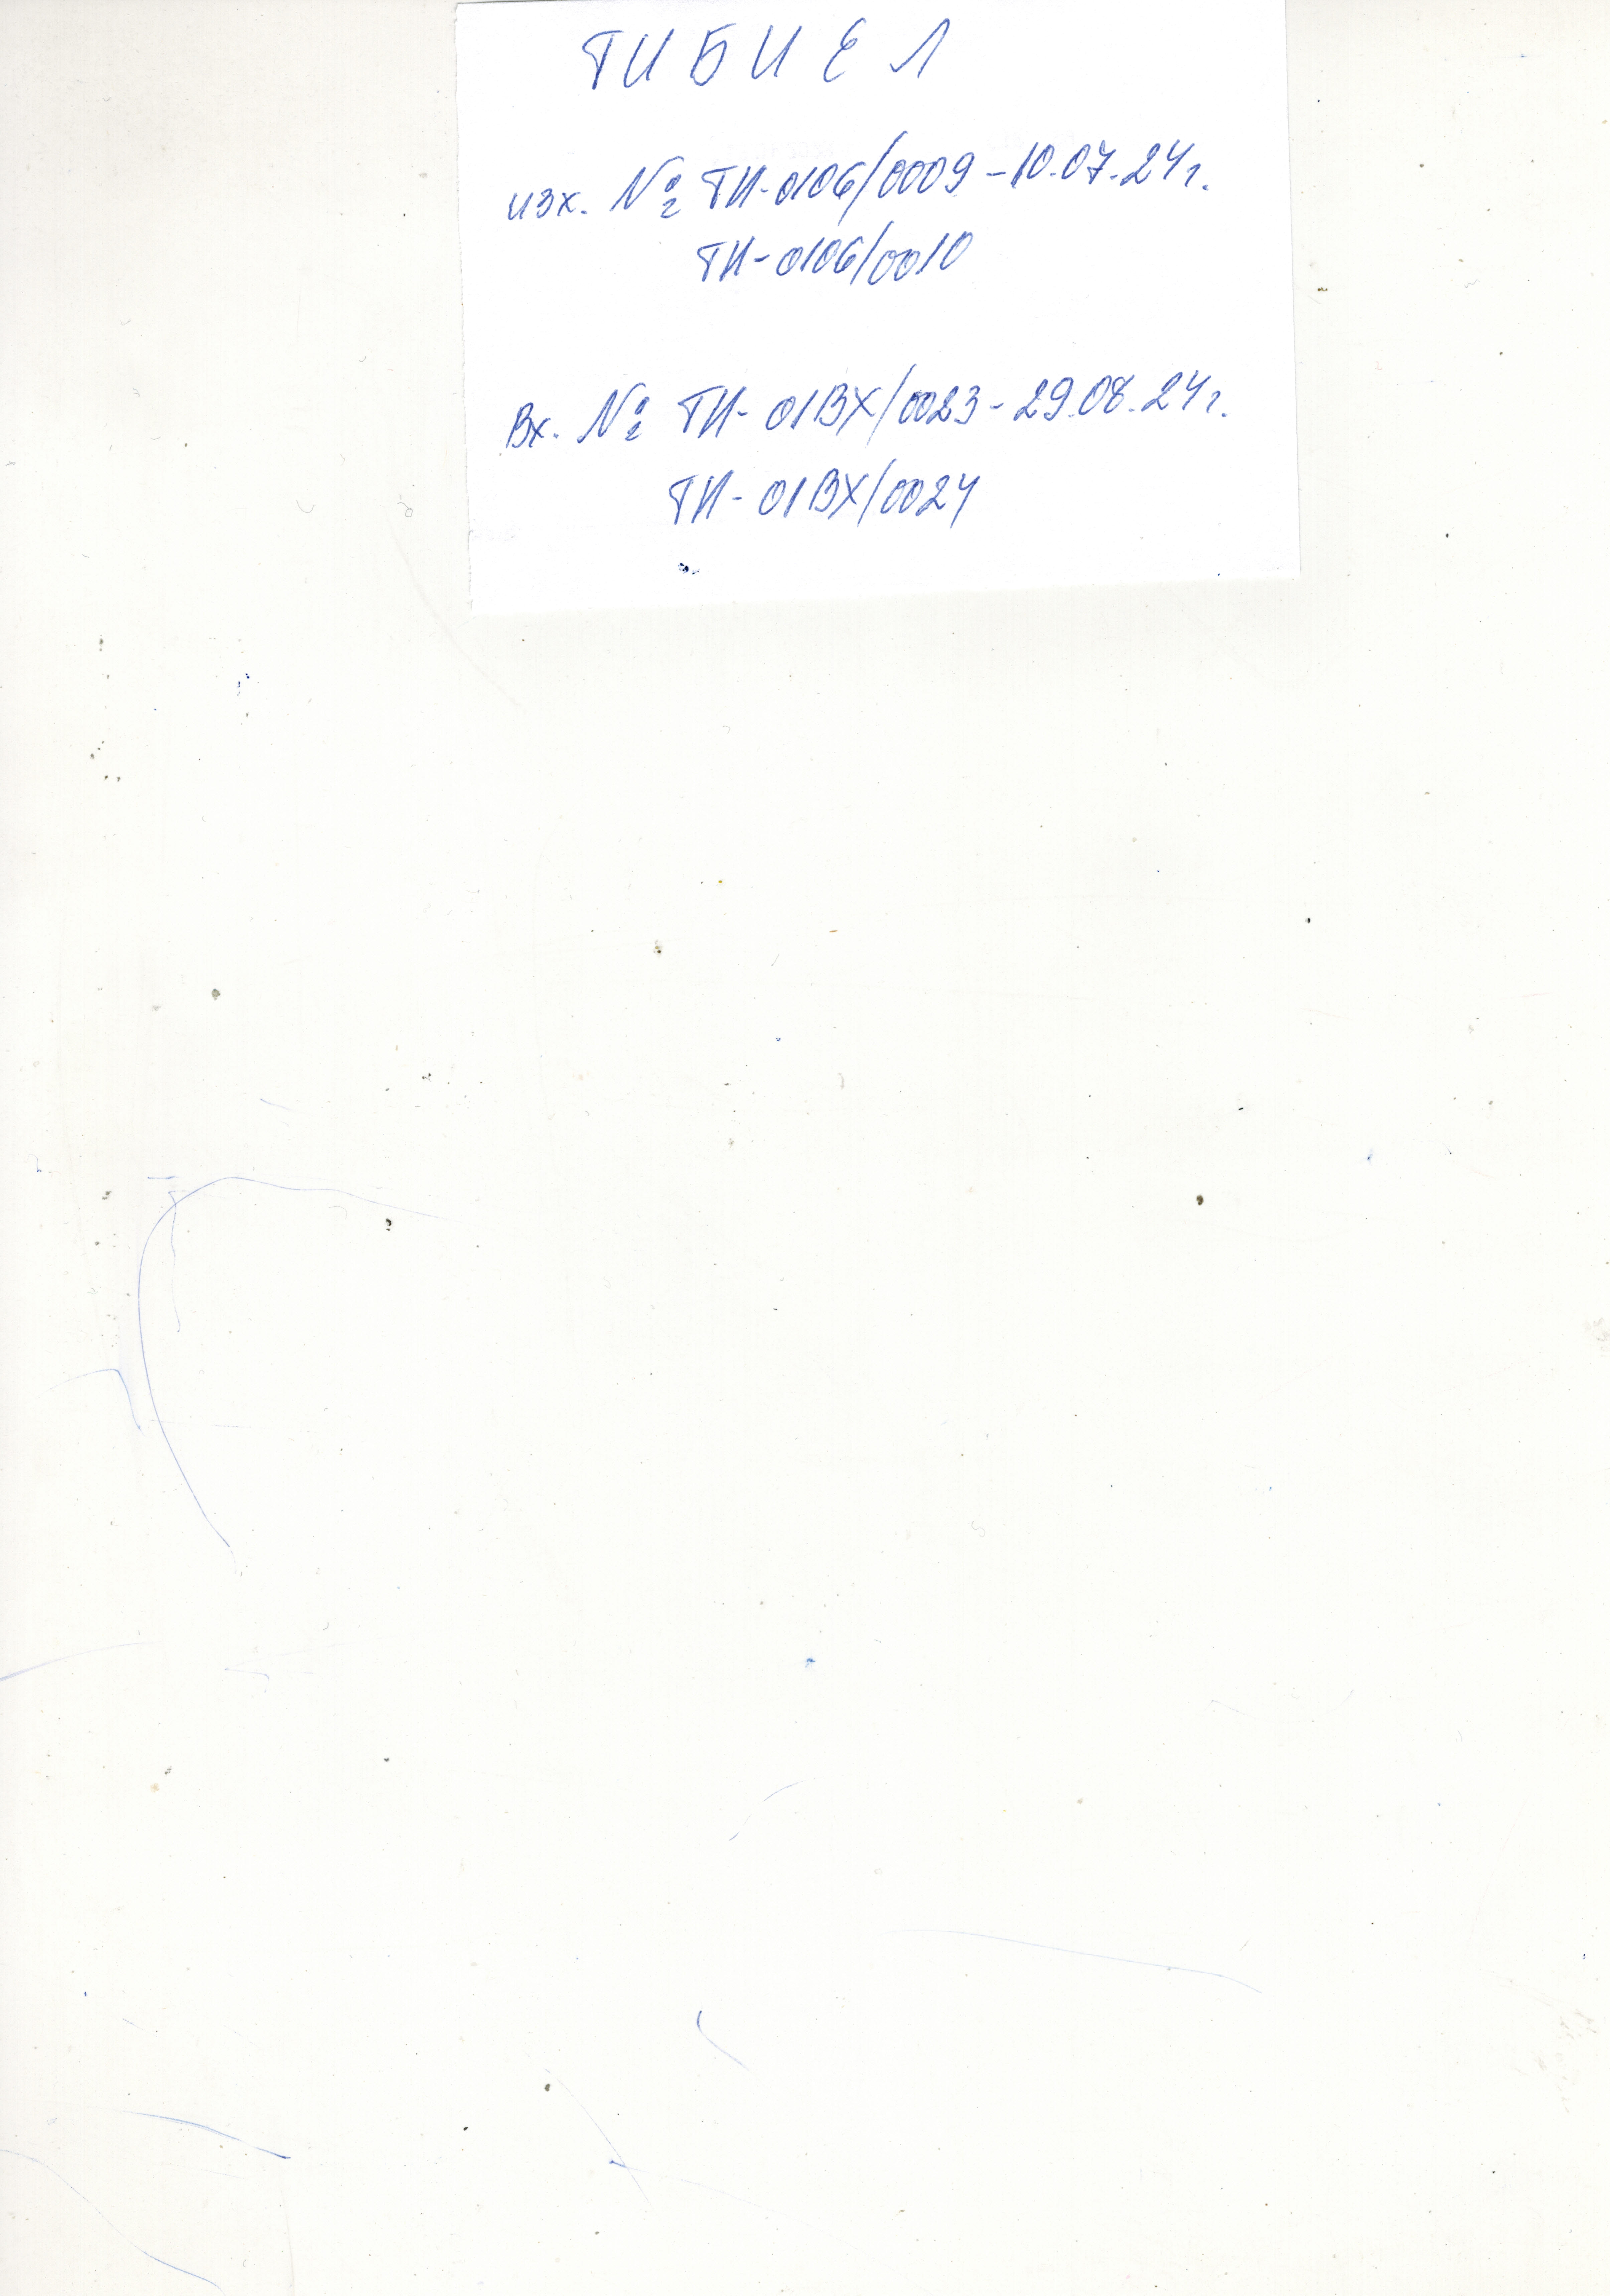 ТИБИЕЛ
изх. № ТИ-0106/0009-10.07.24г.
ТИ-0106/0010
Вх. № ТИ-01ВХ/0023-29.08.24г.
ТИ-01ВХ/0024